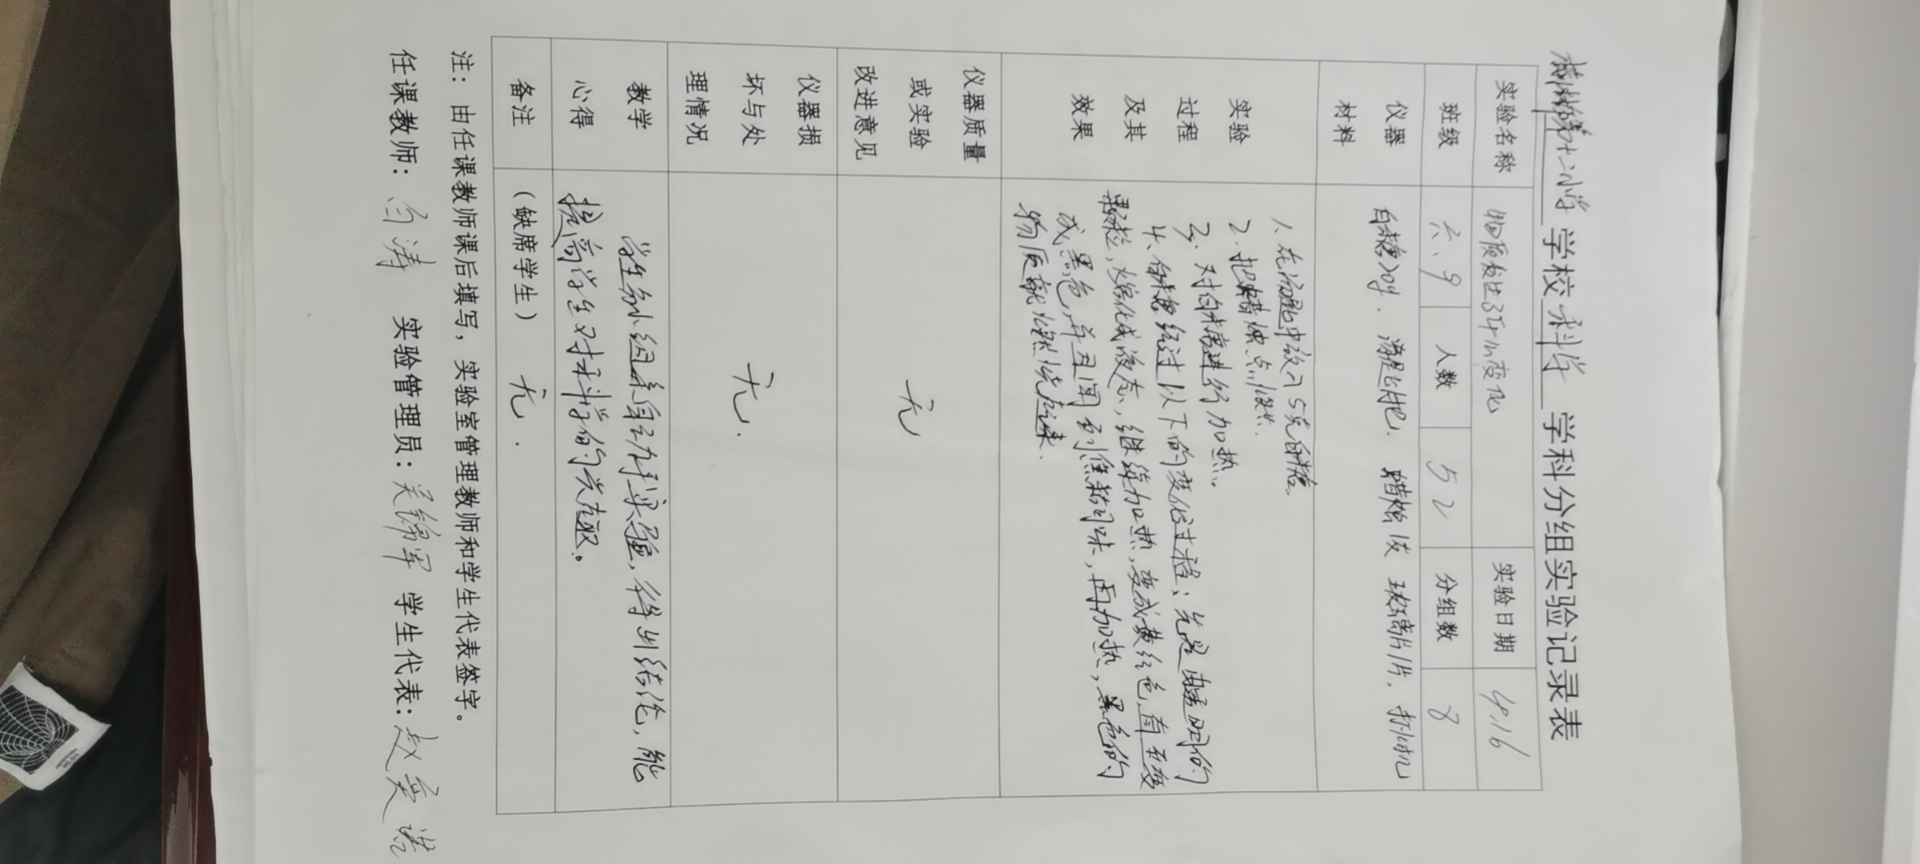 第十二小学 学校 科学 学科分组实验记录表
实验名称 物质发生了什么变化 实验日期 4.16
班级 六、9 人数 52 分组数 8
仪器材料 白糖 蜡烛 玻璃片1片 打火机
实验过程及其效果
1、在汤匙中放入5克白糖。
2、把蜡烛点燃.
3、对白糖进行加热。
4、白糖经过以下的变化过程：先是由透明的
颗粒，熔化成液态，继续加热，变成黄红色，直至变
成黑色，并且闻到焦糊味，再加热，黑色的
物质就燃烧起来.
仪器质量或实验改进意见 无
仪器损坏与处理情况 无.
教学心得 学生分小组亲自动手实验，得出结论，能
提高学生对科学的兴趣。
备注 （缺席学生） 无.
注：由任课教师课后填写，实验室管理教师和学生代表签字。
任课教师： 涛 实验管理员：吴锦军 学生代表：赵奕